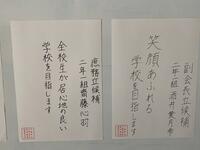 副会長立候補
二年一組 酒井 葉月
笑顔あふれる
学校を目指します
庶務立候補
二年一組 齋藤 心羽
全校生が居心地の良い
学校を目指します